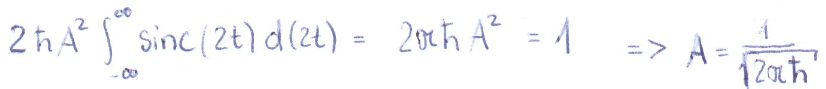 2ħA² ∫_{-∞}^{∞} sinc(2t) d(2t) = 2πħA² = 1 => A = 1/√(2πħ)